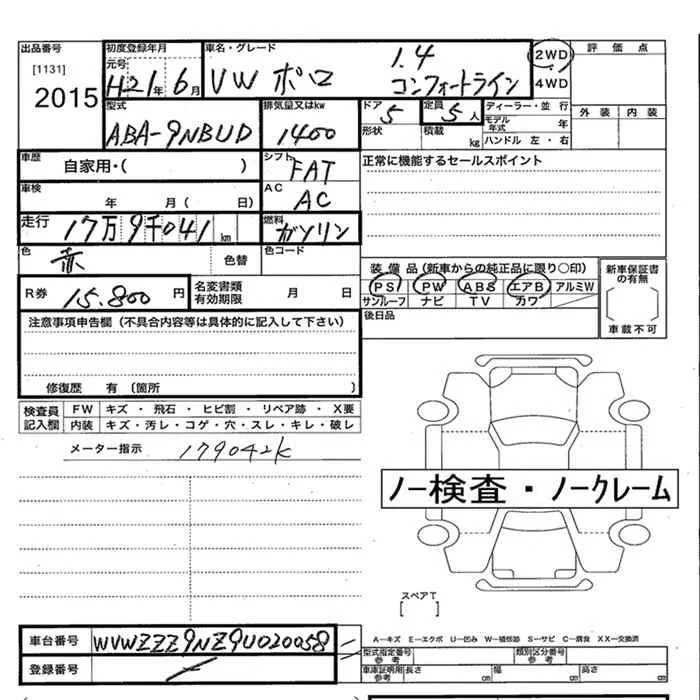 出品番号 初度登録年月 車名・グレード 評 価 点
[1131] 元号 1.4 2WD
2015 H21年 6月 VW ポロ コンフォートライン 4WD
型式 排気量又はkw ドア 定員 ディーラー・並 行 外 装 内 装
ABA-9NBUD 1400 5 5人 モデル年式 年
形状 積載 kg ハンドル 左・右
車歴 自家用・( ) シフト FAT 正常に機能するセールスポイント
車検 年 月( 日) AC AC
走行 17万9千041km 燃料 ガソリン
色 赤 色替 色コード
装 備 品 (新車からの純正品に限り○印) 新車保証書の有無
R券 15.800円 名変書類有効期限 月 日 PS PW ABS エアB アルミW
サンルーフ ナビ TV カワ
後日品 車載不可
注意事項申告欄 (不具合内容等は具体的に記入して下さい)
修復歴 有 (箇所 )
検査員記入欄 FW キズ ・ 飛石 ・ ヒビ割 ・ リペア跡 ・ X要
内装 キズ・汚レ・コゲ・穴・スレ・キレ・破レ
メーター指示 179042K
ノー検査・ノークレーム
スペアT
[ ]
車台番号 WVWZZZ9NZ9U020058
登録番号
A−キズ E−エクボ U−凹み W−補修跡 S−サビ C−腐食 XX−交換済
型式指定番号参考 類別区分番号参考
車庫証明用参考 長さ cm 幅 cm 高さ cm